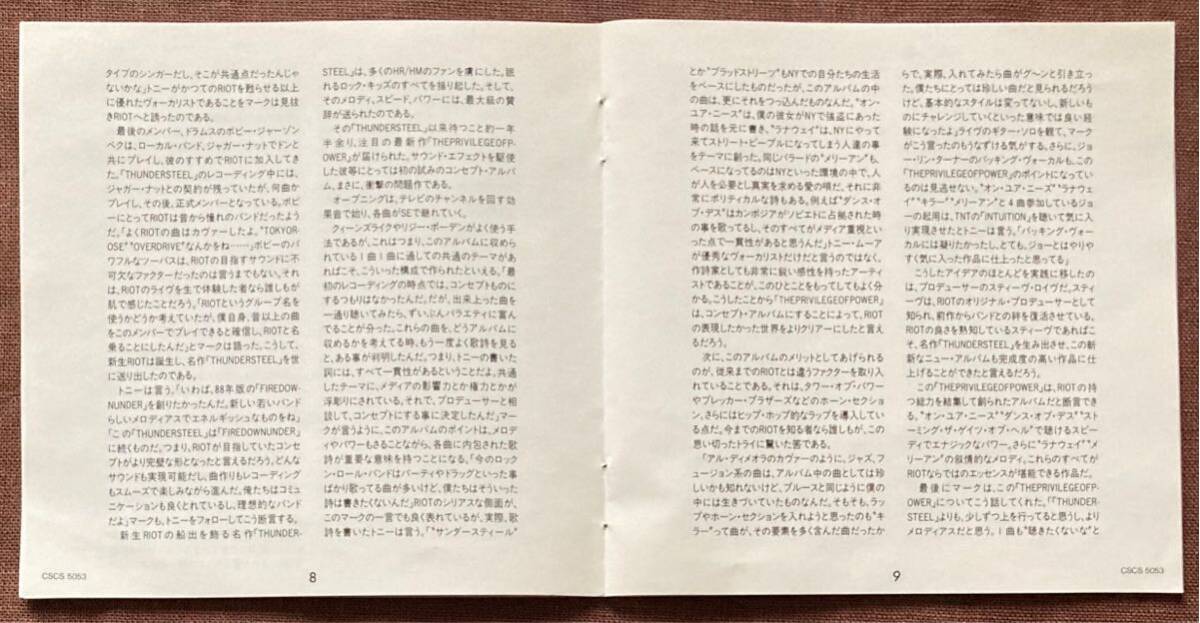 タイプのシンガーだし、そこが共通点だったんじゃ
ないかな」トニーがかつてのRIOTを甦らせる以上
に優れたヴォーカリストであることをマークは見抜
きRIOTへと誘ったのである。
最後のメンバー、ドラムスのボビー・ジャーゾン
ベクは、ローカル・バンド、ジャガー・ナットでドンと
共にプレイし、彼のすすめでRIOTに加入してき
た。「THUNDERSTEEL」のレコーディング中には、
ジャガー・ナットとの契約が残っていたが、何曲か
プレイし、その後、正式メンバーとなっている。ボビ
ーにとってRIOTは昔から憧れのバンドだったよう
だ。「よくRIOTの曲はカヴァーしたよ。“TOKYOR-
OSE”“OVERDRIVE”なんかをね……」ボビーのパ
ワフルなツーバスは、RIOTの目指すサウンドに不
可欠なファクターだったのは言うまでもない。それ
は、RIOTのライヴを生で体験した者なら誰しもが
肌で感じたことだろう。「RIOTというグループ名を
使うかどうか考えていたが、僕自身、昔以上の曲
をこのメンバーでプレイできると確信し、RIOTと名
乗ることにしたんだ」とマークは語った。こうして、
新生RIOTは誕生し、名作「THUNDERSTEEL」を世
に送り出したのである。
トニーは言う。「いわば、88年版の「FIREDOW-
NUNDER」を創りたかったんだ。新しい若いバンド
らしいメロディアスでエネルギッシュなものをね」
「この「THUNDERSTEEL」は「FIREDOWNUNDER」
に続くものだ。つまり、RIOTが目指していたコンセ
プトがより完璧な形となったと言えるだろう。どんな
サウンドも実現可能だし、曲作りもレコーディング
もスムーズで楽しみながら進んだ。俺たちはコミュ
ニケーションも良くとれているし、理想的なバンド
だよ」マークも、トニーをフォローしてこう断言する。
新生RIOTの船出を飾る名作「THUNDER-
STEEL」は、多くのHR/HMのファンを虜にした。眠
れるロック・キッズのすべてを揺り起した。そして、
そのメロディ、スピード、パワーには、最大級の賛
辞が送られたのである。
その「THUNDERSTEEL」以来待つこと約一年
半余り、注目の最新作「THEPRIVILEGEOFP-
OWER」が届けられた。サウンド・エフェクトを駆使
した彼等にとっては初の試みのコンセプト・アルバ
ム。まさに、衝撃の問題作である。
オープニングは、テレビのチャンネルを回す効
果音で始り、各曲がSEで継れていく。
クィーンズライクやリジー・ボーデンがよく使う手
法であるが、これはつまり、このアルバムに収めら
れている1曲1曲に通しての共通のテーマがあ
ればこそ、こういった構成で作られたといえる。「最
初のレコーディングの時点では、コンセプトものに
するつもりはなかったんだ。だが、出来上った曲を
一通り聴いてみたら、ずいぶんバラエティに富ん
でることが分った。これらの曲を、どうアルバムに
収めるかを考えてる時、もう一度よく歌詩を見る
と、ある事が判明したんだ。つまり、トニーの書いた
詞には、すべて一貫性があるということだよ。共通
したテーマに、メディアの影響力とか権力とかが
浮彫りにされている。それで、プロデューサーと相
談して、コンセプトにする事に決定したんだ」マー
クが言うように、このアルバムのポイントは、メロデ
ィやパワーもさることながら、各曲に内包された歌
詩が重要な意味を持つことになる。「今のロック
ン・ロール・バンドはパーティやドラッグといった事
ばかり歌ってる曲が多いけど、僕たちはそういった
詩は書きたくないんだ」RIOTのシリアスな側面が、
このマークの一言でも良く表れているが、実際、歌
詩を書いたトニーは言う。「“サンダースティール”
CSCS 5053
8
とか“ブラッドストリーツ”もNYでの自分たちの生活
をベースにしたものだったが、このアルバムの中
の曲は、更にそれをつっ込んだものなんだ。“オン・
ユア・ニーズ”は、僕の彼女がNYで強盗にあった
時の話を元に書き、“ラナウェイ”は、NYにやって
来てストリート・ピープルになってしまう人達の事
をテーマに創った。同じバラードの“メリーアン”も、
ベースになってるのはNYといった環境の中で、人
が人を必要とし真実を求める愛の唄だ。それに非
常にポリティカルな詩もある。例えば“ダンス・オ
ブ・デス”はカンボジアがソビエトに占拠された時
の事を歌ってるし、そのすべてがメディア重視とい
った点で一貫性があると思うんだ」トニー・ムーア
が優秀なヴォーカリストだけだと言うのではなく、
作詩家としても非常に鋭い感性を持ったアーティ
ストであることが、このひとことをもってしてもよく分
かる。こうしたことから「THEPRIVILEGEOFPOWER」
は、コンセプト・アルバムにすることによって、RIOT
の表現したかった世界をよりクリアーにしたと言え
るだろう。
次に、このアルバムのメリットとしてあげられる
のが、従来までのRIOTとは違うファクターを取り
入れていることである。それは、タワー・オブ・パワー
やブレッカー・ブラザーズなどのホーン・セクショ
ン、さらにはヒップ・ホップ的なラップを導入してい
る点だ。今までのRIOTを知る者なら誰しもが、この
思い切ったトライに驚いた筈である。
「アル・ディメオラのカヴァーのように、ジャズ、フ
ュージョン系の曲は、アルバム中の曲としては珍
しいかも知れないけど、ブルースと同じように僕の
中には生きづいていたものなんだ。そもそも、ラッ
プやホーン・セクションを入れようと思ったのも“キ
ラー”って曲が、その要素を多く含んだ曲だったか
らで、実際、入れてみたら曲がグ〜ンと引き立っ
た。僕たちにとっては珍しい曲だと見られるだろう
けど、基本的なスタイルは変ってないし、新しいも
のにチャレンジしていくといった意味では良い経
験になったよ」ライヴのギター・ソロを観て、マーク
がこう言ったのもうなずける気がする。さらに、ジョ
ー・リン・ターナーのバッキング・ヴォーカルも、この
「THEPRIVILEGEOFPOWER」のポイントになってい
るのは見逃せない。“オン・ユア・ニーズ”“ラナウ
ェイ”“キラー”“メリーアン”と4曲参加しているジョ
ーの起用は、TNTの「INTUITION」を聴いて気に入
り実現させたとトニーは言う。「バッキング・ヴォー
カルには凝りたかったし、とても、ジョーとはやりや
すく気に入った作品に仕上ったと思ってる」
こうしたアイデアのほとんどを実践に移したの
は、プロデューサーのスティーヴ・ロイヴだ。スティ
ーヴは、RIOTのオリジナル・プロデューサーとして
は知られ、前作からバンドとの絆を復活させている。
RIOTの良さを熟知しているスティーヴであればこ
そ、名作「THUNDERSTEEL」を生み出させ、この斬
新なニュー・アルバムも完成度の高い作品に仕
上げることができたと言えるだろう。
この「THEPRIVILEGEOFPOWER」は、RIOTの持
つ総力を結集して創られたアルバムだと断言でき
る。“オン・ユア・ニーズ”“ダンス・オブ・デス”“スト
ーミング・ザ・ゲイツ・オブ・ヘル”で聴けるスピー
ディでエナジックなパワー。さらに“ラナウェイ”“メ
リーアン”の叙情的なメロディ。これらのすべてが
RIOTならではのエッセンスが堪能できる作品だ。
最後にマークは、この「THEPRIVILEGEOFP-
OWER」についてこう話してくれた。「「THUNDER-
STEEL」よりも、少しずつ上を行ってると思うし、より
メロディアスだと思う。1曲も“聴きたくないな”と
9
CSCS 5053